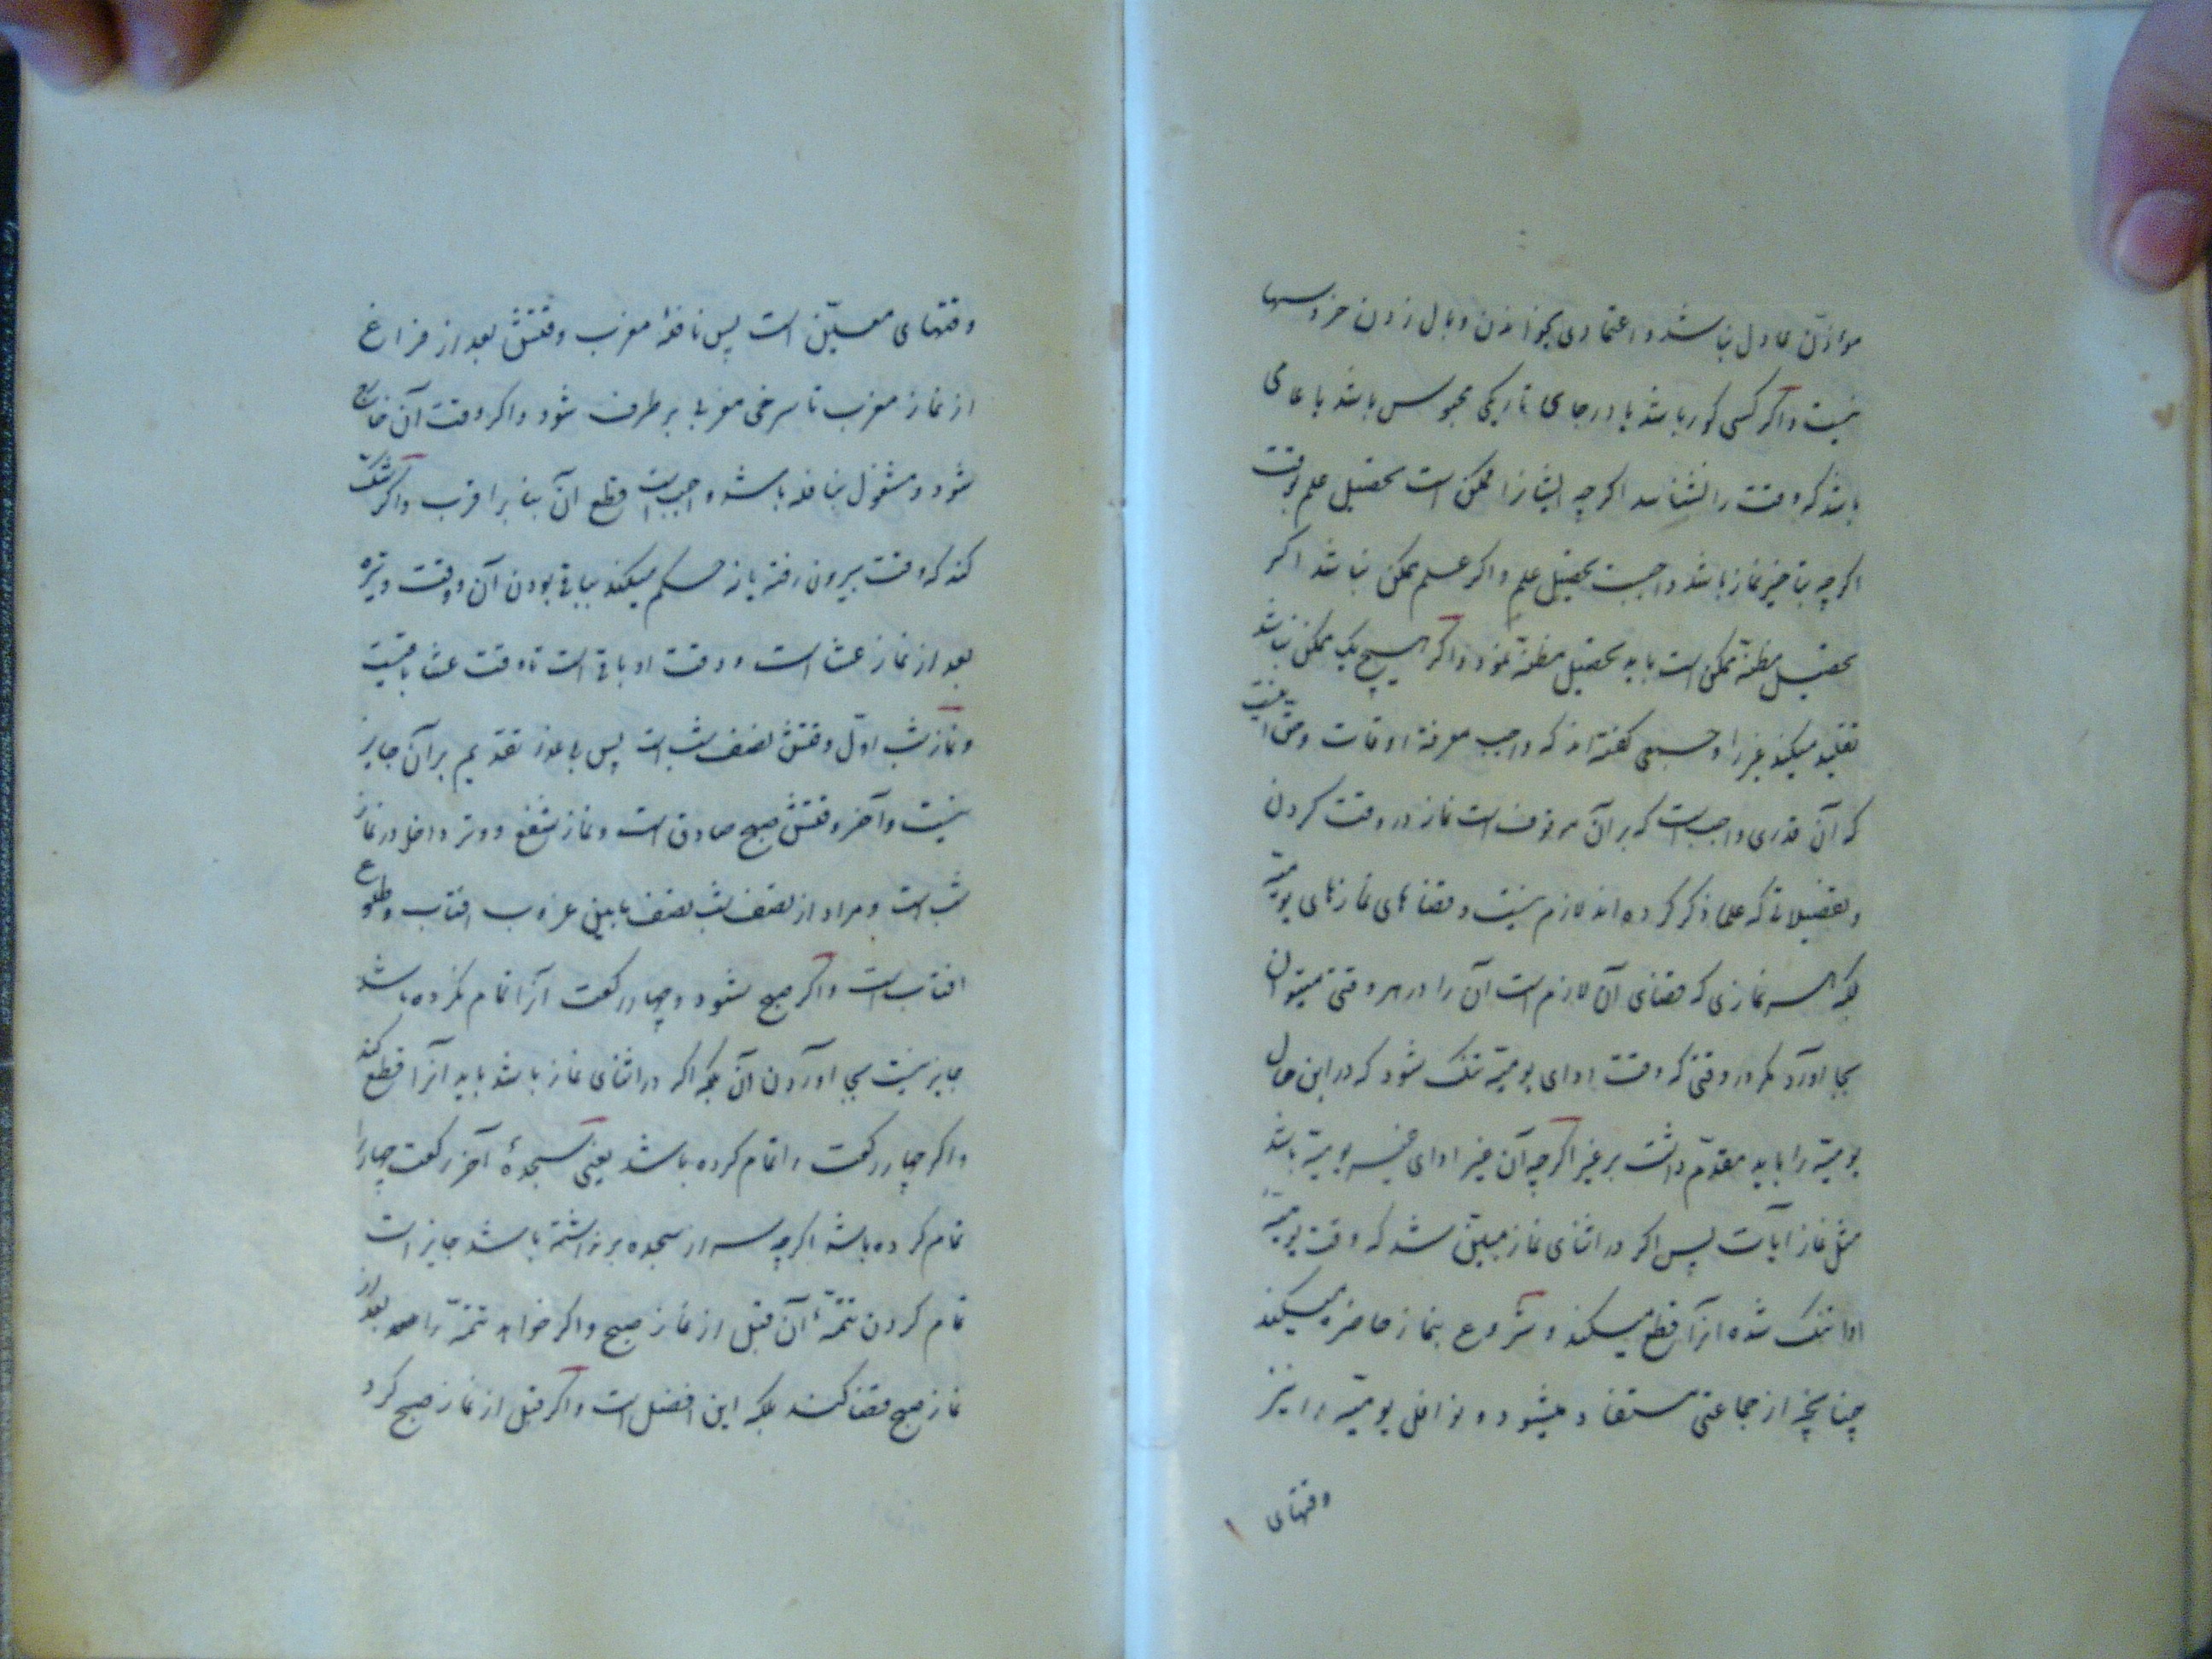 مؤاذن عادل نباشد و اعتمادی بخواندن و بال زدن خروسها
نیست و اگر کسی کور باشد یا در جای تاریکی محبوس باشد یا عامی
باشد که وقت را نشناسد اگر چه ایشانرا ممکن است تحصیل علم بوقت
اگر چه بتاخیر نماز باشد واجبست تحصیل علم و اگر علم ممکن نباشد اگر
تحصیل مظنّه ممکن است باید تحصیل مظنّه نمود و اگر هیچ یک ممکن نباشد
تقلید میکند غیر را و جمعی گفته‌اند که واجب معرفة اوقات و حق اینست
که آن قدری واجب است که بر آن موقوف است نماز در وقت کردن
و تفصیلاتی که علما ذکر کرده‌اند لازم نیست و قضا های نماز های یومیّه
بلکه هر نمازی که قضای آن لازم است آن را در هر وقتی میتوان
بجا آورد مگر در وقتی که وقت ادای یومیّه تنگ شود که در این حال
یومیّه را باید مقدّم داشت بر غیر اگر چه آن غیر ادای غیر یومیّه باشد
مثل نماز آیات پس اگر در اثنای نماز متیقّن شد که وقت یومیّه
ادا تنگ شده آنرا قطع میکند و شروع بنماز حاضره میکند
چنانچه از جماعتی مستفاد میشود و نوافل یومیّه را نیز
وقتهای
وقتهای معیّن است پس نافلهٔ مغرب وقتش بعد از فراغ
از نماز مغرب تا سرخی مغربی بر طرف شود و اگر وقت آن خارج
شود و مشغول بنافله باشد واجب است قطع آن بنا بر اقرب و اگر شک
کند که وقت بیرون رفته یا نه حکم میکند بباقی بودن آن وقت و وتیره
بعد از نماز عشا است و وقت او باقی است تا وقت عشا باقیست
و نماز شب اوّل وقتش نصف شب است پس بی عذر تقدیم بر آن جایز
نیست و آخر وقتش صبح صادق است و نماز شفع و وتر داخل در نماز
شب است و مراد از نصف شب نصف مابین غروب افتاب و طلوع
افتاب است و اگر صبح شود و چهار رکعت آنرا تمام نکرده باشد
جایز نیست بجا آوردن آن بلکه اگر در اثنای نماز باشد باید آنرا قطع کند
و اگر چهار رکعت را تمام کرده باشد یعنی سجدهٔ آخر رکعت چهار را
تمام کرده باشد اگر چه سر از سجده بر نداشته باشد جایز است
تمام کردن تتمّهٔ آن قبل از نماز صبح و اگر خواهد تتمّه را بعد از
نماز صبح قضا کند بلکه این افضل است و اگر قبل از نماز صبح کرد